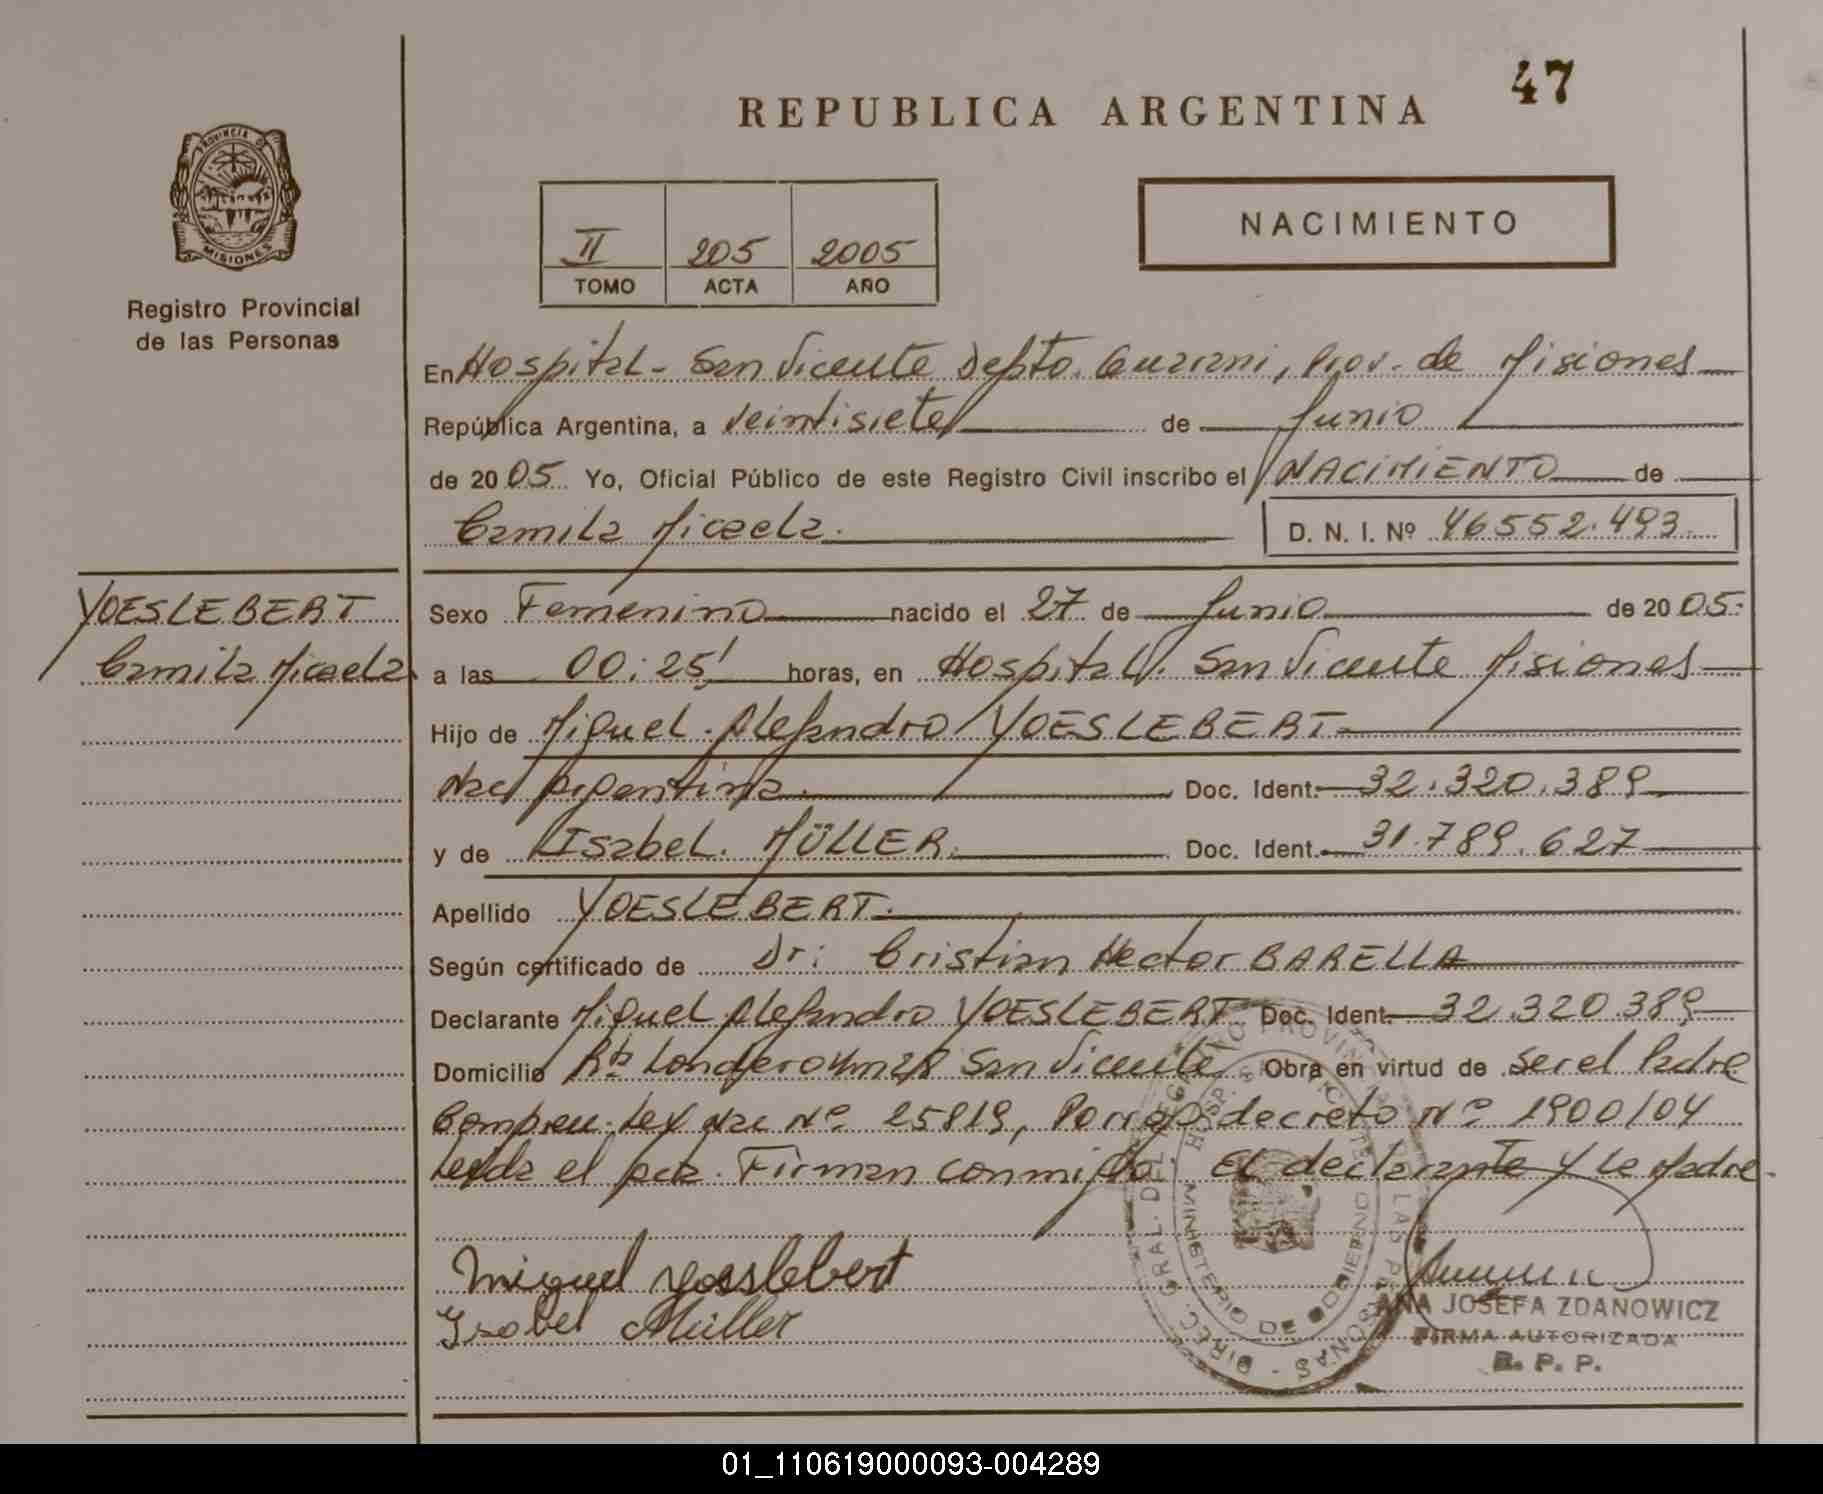 47
REPUBLICA ARGENTINA
PROVINCIA DE
MISIONES
Registro Provincial
de las Personas
II 205 2005
TOMO ACTA AÑO
NACIMIENTO
En Hospital - San Vicente Depto. Guarani, Prov. de Misiones
República Argentina, a veintisiete de Junio
de 2005 Yo, Oficial Público de este Registro Civil inscribo el NACIMIENTO de
Camila Micaela.
D. N. I. Nº 46552.493.
YOESLEBERT
Camila Micaela
Sexo Femenino nacido el 27 de Junio de 2005.
a las 00:25' horas, en Hospital. San Vicente Misiones
Hijo de Miguel Alejandro YOESLEBERT
Nac Argentina. Doc. Ident. 32.320.389
y de Isabel. MÜLLER. Doc. Ident. 31.789.627
Apellido YOESLEBERT.
Según certificado de Dr: Cristian Hector BARELLA
Declarante Miguel Alejandro YOESLEBERT Doc. Ident. 32.320.389
Domicilio Londero Km 28 San Vicente Obra en virtud de ser el Padre
Ley Nac Nº 25819, decreto Nº 1900/04
Leida el Firman conmigo El declarante y la Madre.
Miguel Yoeslebert
Isabel Müller
DIREC. GRAL. DEL REG. PROVINCIAL DE LAS PERSONAS
MINISTERIO DE GOBIERNO
ANA JOSEFA ZDANOWICZ
FIRMA AUTORIZADA
R. P. P.
01_110619000093-004289